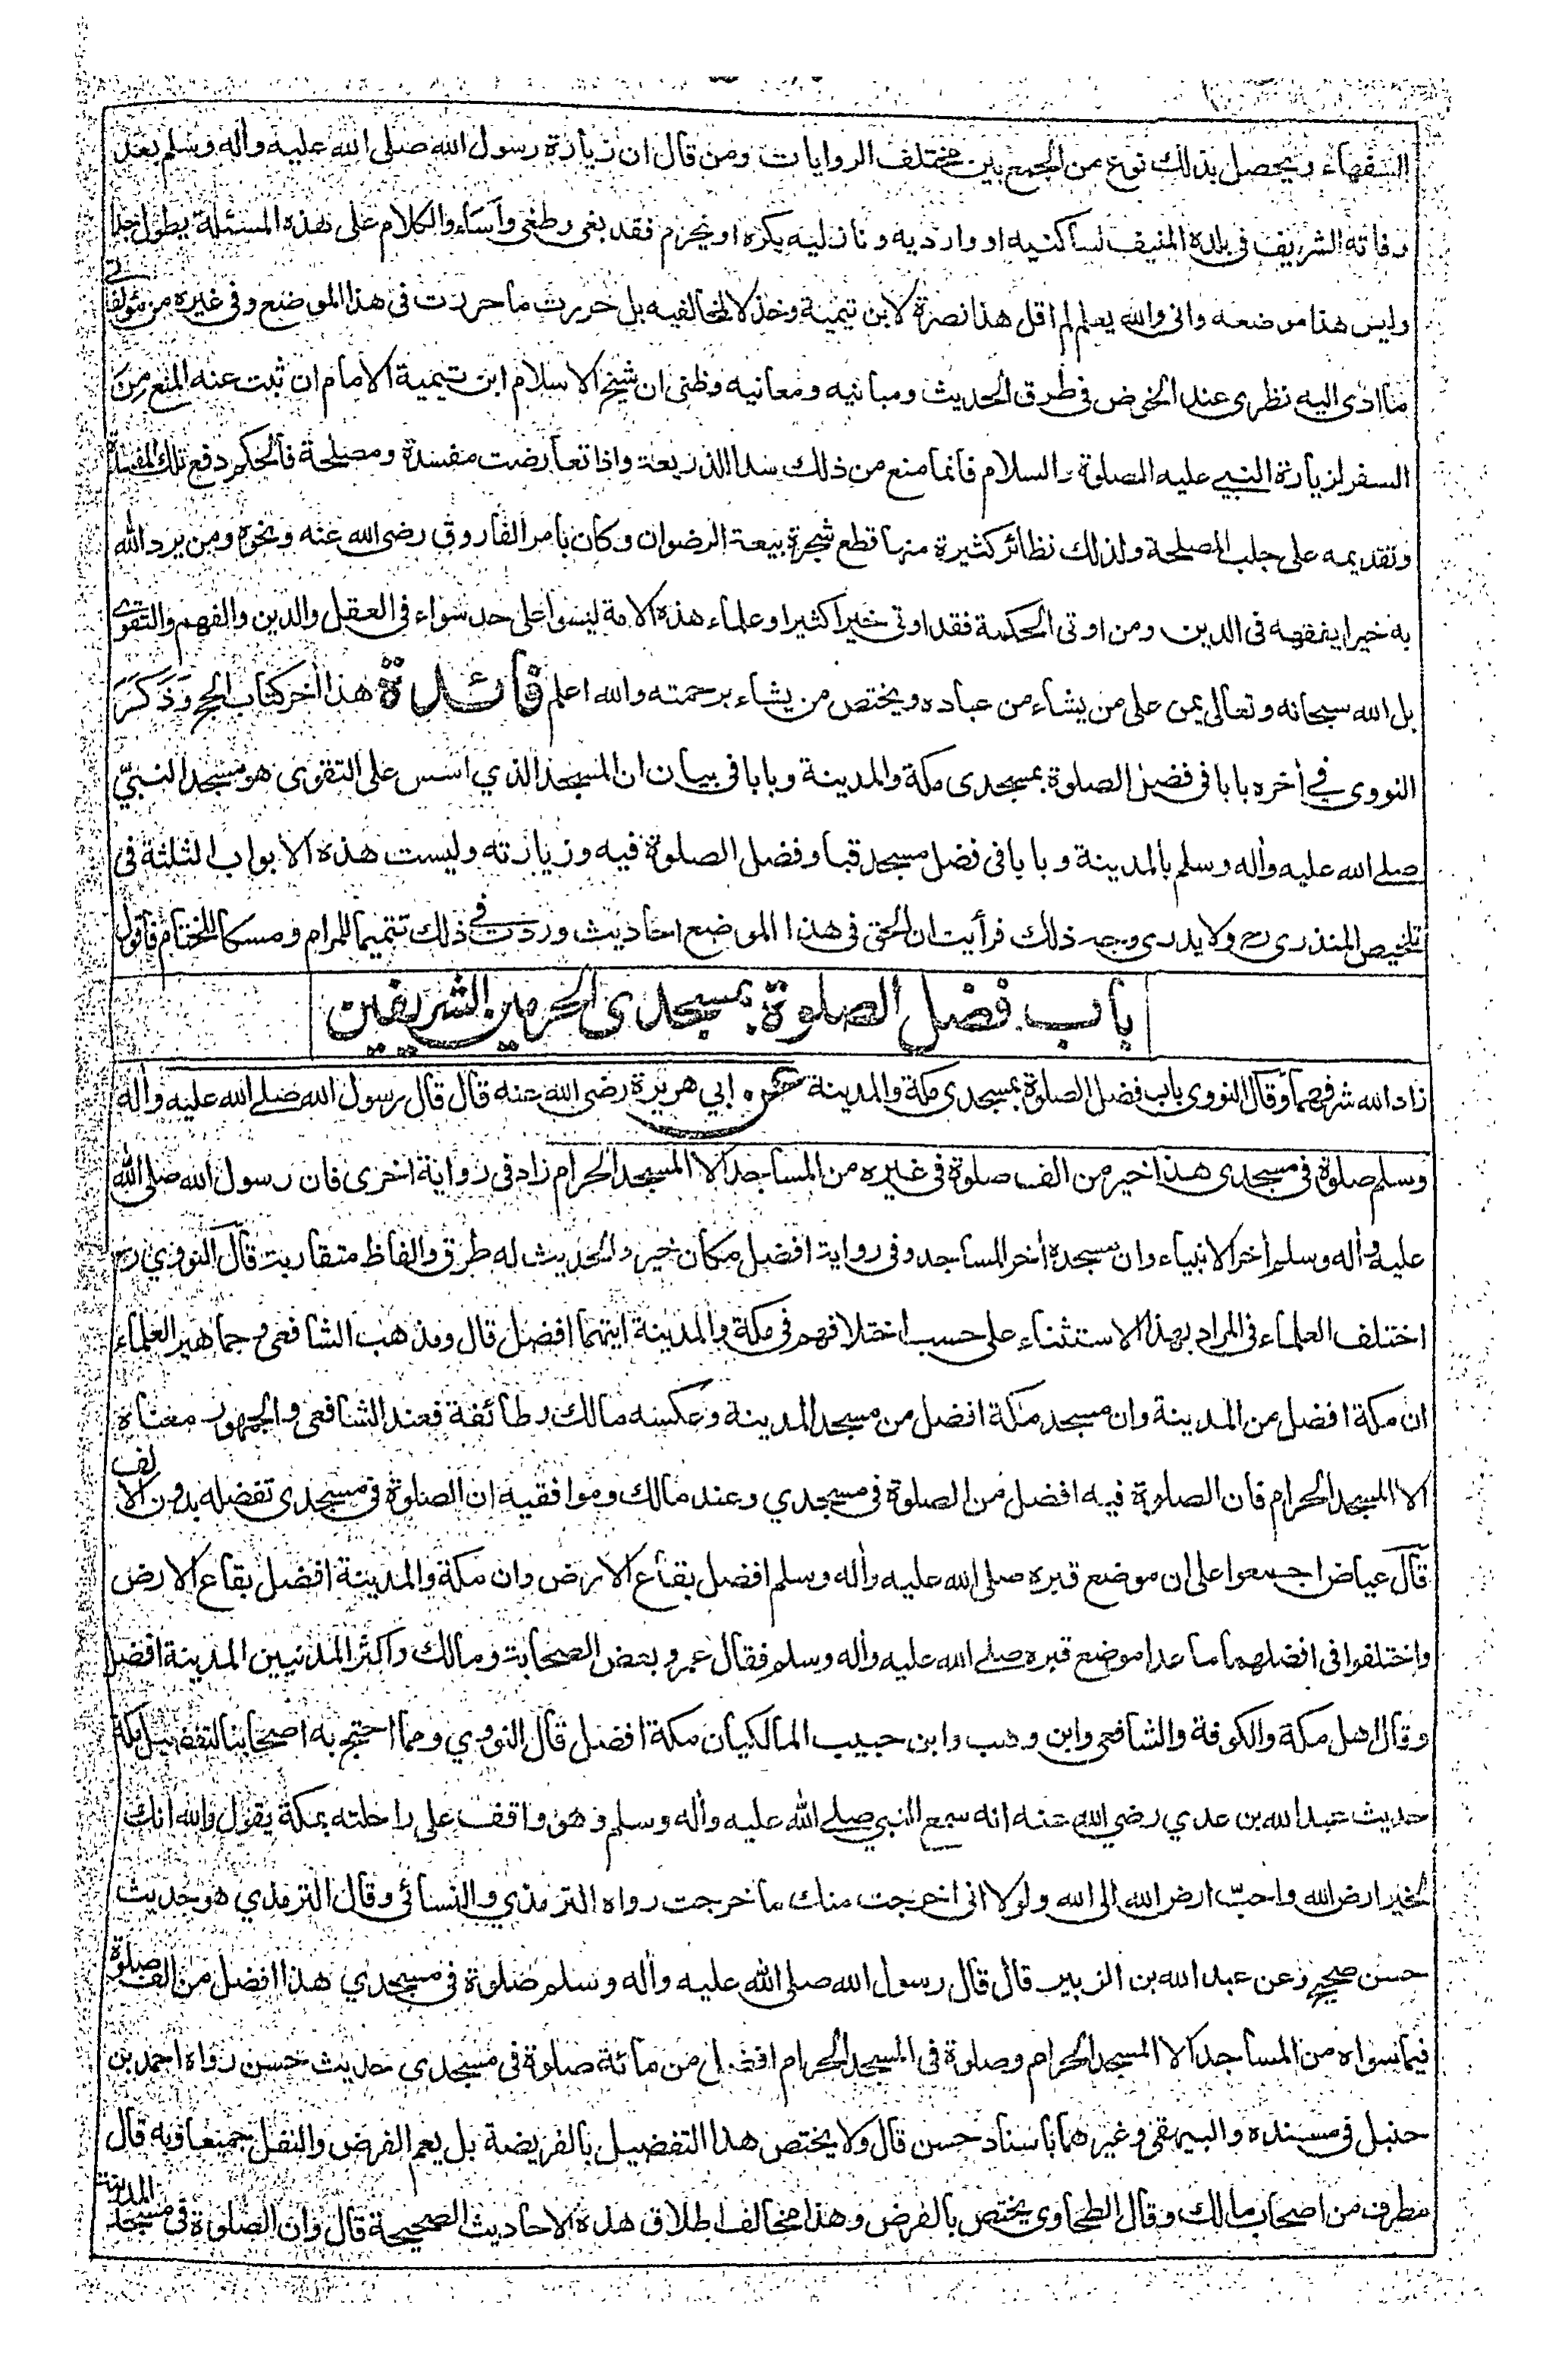 السفهاء ويحصل بذلك نوع من الجمع بين مختلف الروايات ومن قال ان زيارة رسول الله صلى الله عليه وأله وسلم بعد
وفاته الشريف فى بلده المنيف لساكنيه او وارديه ونازليه يكره او يحرم فقد بغى وطغى وأساء والكلام على هذه المسئلة يطول جدا
وليس هذا موضعه وانى والله يعلم لم اقل هذا نصرة لابن تيمية وخذلا لمخالفيه بل حررت ما حررت فى هذا الموضع وفى غيره من مؤلفاتى
ما ادى اليه نظرى عند الخوض فى طرق الحديث ومبانيه ومعانيه وظنى ان شيخ الاسلام ابن تيمية الامام ان ثبت عنه المنع من
السفر لزيارة النبي عليه الصلوة والسلام فانما منع من ذلك سدا للذريعة واذا تعارضت مفسدة ومصلحة فالحكم دفع تلك المفسدة
وتقديمه على جلب المصلحة ولذلك نظائر كثيرة منها قطع شجرة بيعة الرضوان وكان بامر الفاروق رضى الله عنه ونحوه ومن يرد الله
به خيرا يفقهه فى الدين ومن اوتى الحكمة فقد اوتى خيرا كثيرا وعلماء هذه الامة ليسوا على حد سواء فى العقل والدين والفهم والتقوى
بل الله سبحانه وتعالى يمن على من يشاء من عباده ويختص من يشاء برحمته والله اعلم فائدة هذا أخر كتاب الحج وَذَكَرَ
النووى في أخره بابا فى فضل الصلوة بمسجدى مكة والمدينة وبابا فى بيان ان المسجد الذي اسس على التقوى هو مسجد النبيّ
صلے الله عليه وأله وسلم بالمدينة وبابا فى فضل مسجد قبا وفضل الصلوة فيه وزيارته وليست هذه الابواب الثلثة فى
تلخيص المنذرى رح ولا يدرى وجه ذلك فرأيت ان الحق فى هذا الموضع احاديث وردت في ذلك تتميما للمرام ومسكا للختام فاقول
باب فضل الصلوة بمسجدى الحرمين الشريفين
زاد الله شرفهما وقال النووى باب فضل الصلوة بمسجدى مكة والمدينة عن ابي هريرة رضى الله عنه قال قال رسول الله صلے الله عليه وأله
وسلم صلوة فى مسجدى هذا خير من الف صلوة فى غيره من المساجد الا المسجد الحرام زاد فى رواية اخرى فان رسول الله صلى الله
عليه وأله وسلم أخر الانبياء وان مسجده أخر المساجد وفى رواية افضل مكان خير والحديث له طرق والفاظ متقاربة قال النووي رح
اختلف العلماء فى المراد بهذا الاستثناء على حسب اختلافهم فى مكة والمدينة ايتهما افضل قال ومذهب الشافعى وجماهير العلماء
ان مكة افضل من المدينة وان مسجد مكة افضل من مسجد المدينة وعكسه مالك وطائفة فعند الشافعى والجمهور معناه
الا المسجد الحرام فان الصلوة فيه افضل من الصلوة فى مسجدي وعند مالك وموافقيه ان الصلوة فى مسجدى تفضله بدون الالف
قال عياض اجمعوا على ان موضع قبره صلى الله عليه وأله وسلم افضل بقاع الارض وان مكة والمدينة افضل بقاع الارض
واختلفوا فى افضلهما ما عدا موضع قبره صلے الله عليه وأله وسلم فقال عمر وبعض الصحابة ومالك واكثر المدنيين المدينة افضل
وقال اهل مكة والكوفة والشافعى وابن وهب وابن حبيب المالكيان مكة افضل قال النووي ومما احتج به اصحابنا لتفضيل مكة
حديث عبد الله بن عدي رضي الله عنه انه سمع النبي صلے الله عليه وأله وسلم وهو واقف على راحلته بمكة يقول والله انك
لخير ارض الله واحبّ ارض الله الى الله ولولا انى اخرجت منك ما خرجت رواه الترمذي والنسائى وقال الترمذي هو حديث
حسن صحيح وعن عبد الله بن الزبير قال قال رسول الله صلى الله عليه وأله وسلم صلوة فى مسجدي هذا افضل من الف صلوة
فيما سواه من المساجد الا المسجد الحرام وصلوة فى المسجد الحرام افضل من مائة صلوة فى مسجدى حديث حسن رواه احمد بن
حنبل فى مسنده والبيهقى وغيرهما باسناد حسن قال ولا يختص هذا التفضيل بالفريضة بل يعم الفرض والنفل جميعا وبه قال
مطرف من اصحاب مالك وقال الطحاوى يختص بالفرض وهذا مخالف اطلاق هذه الاحاديث الصحيحة قال وان الصلوة فى مسجد المدينة